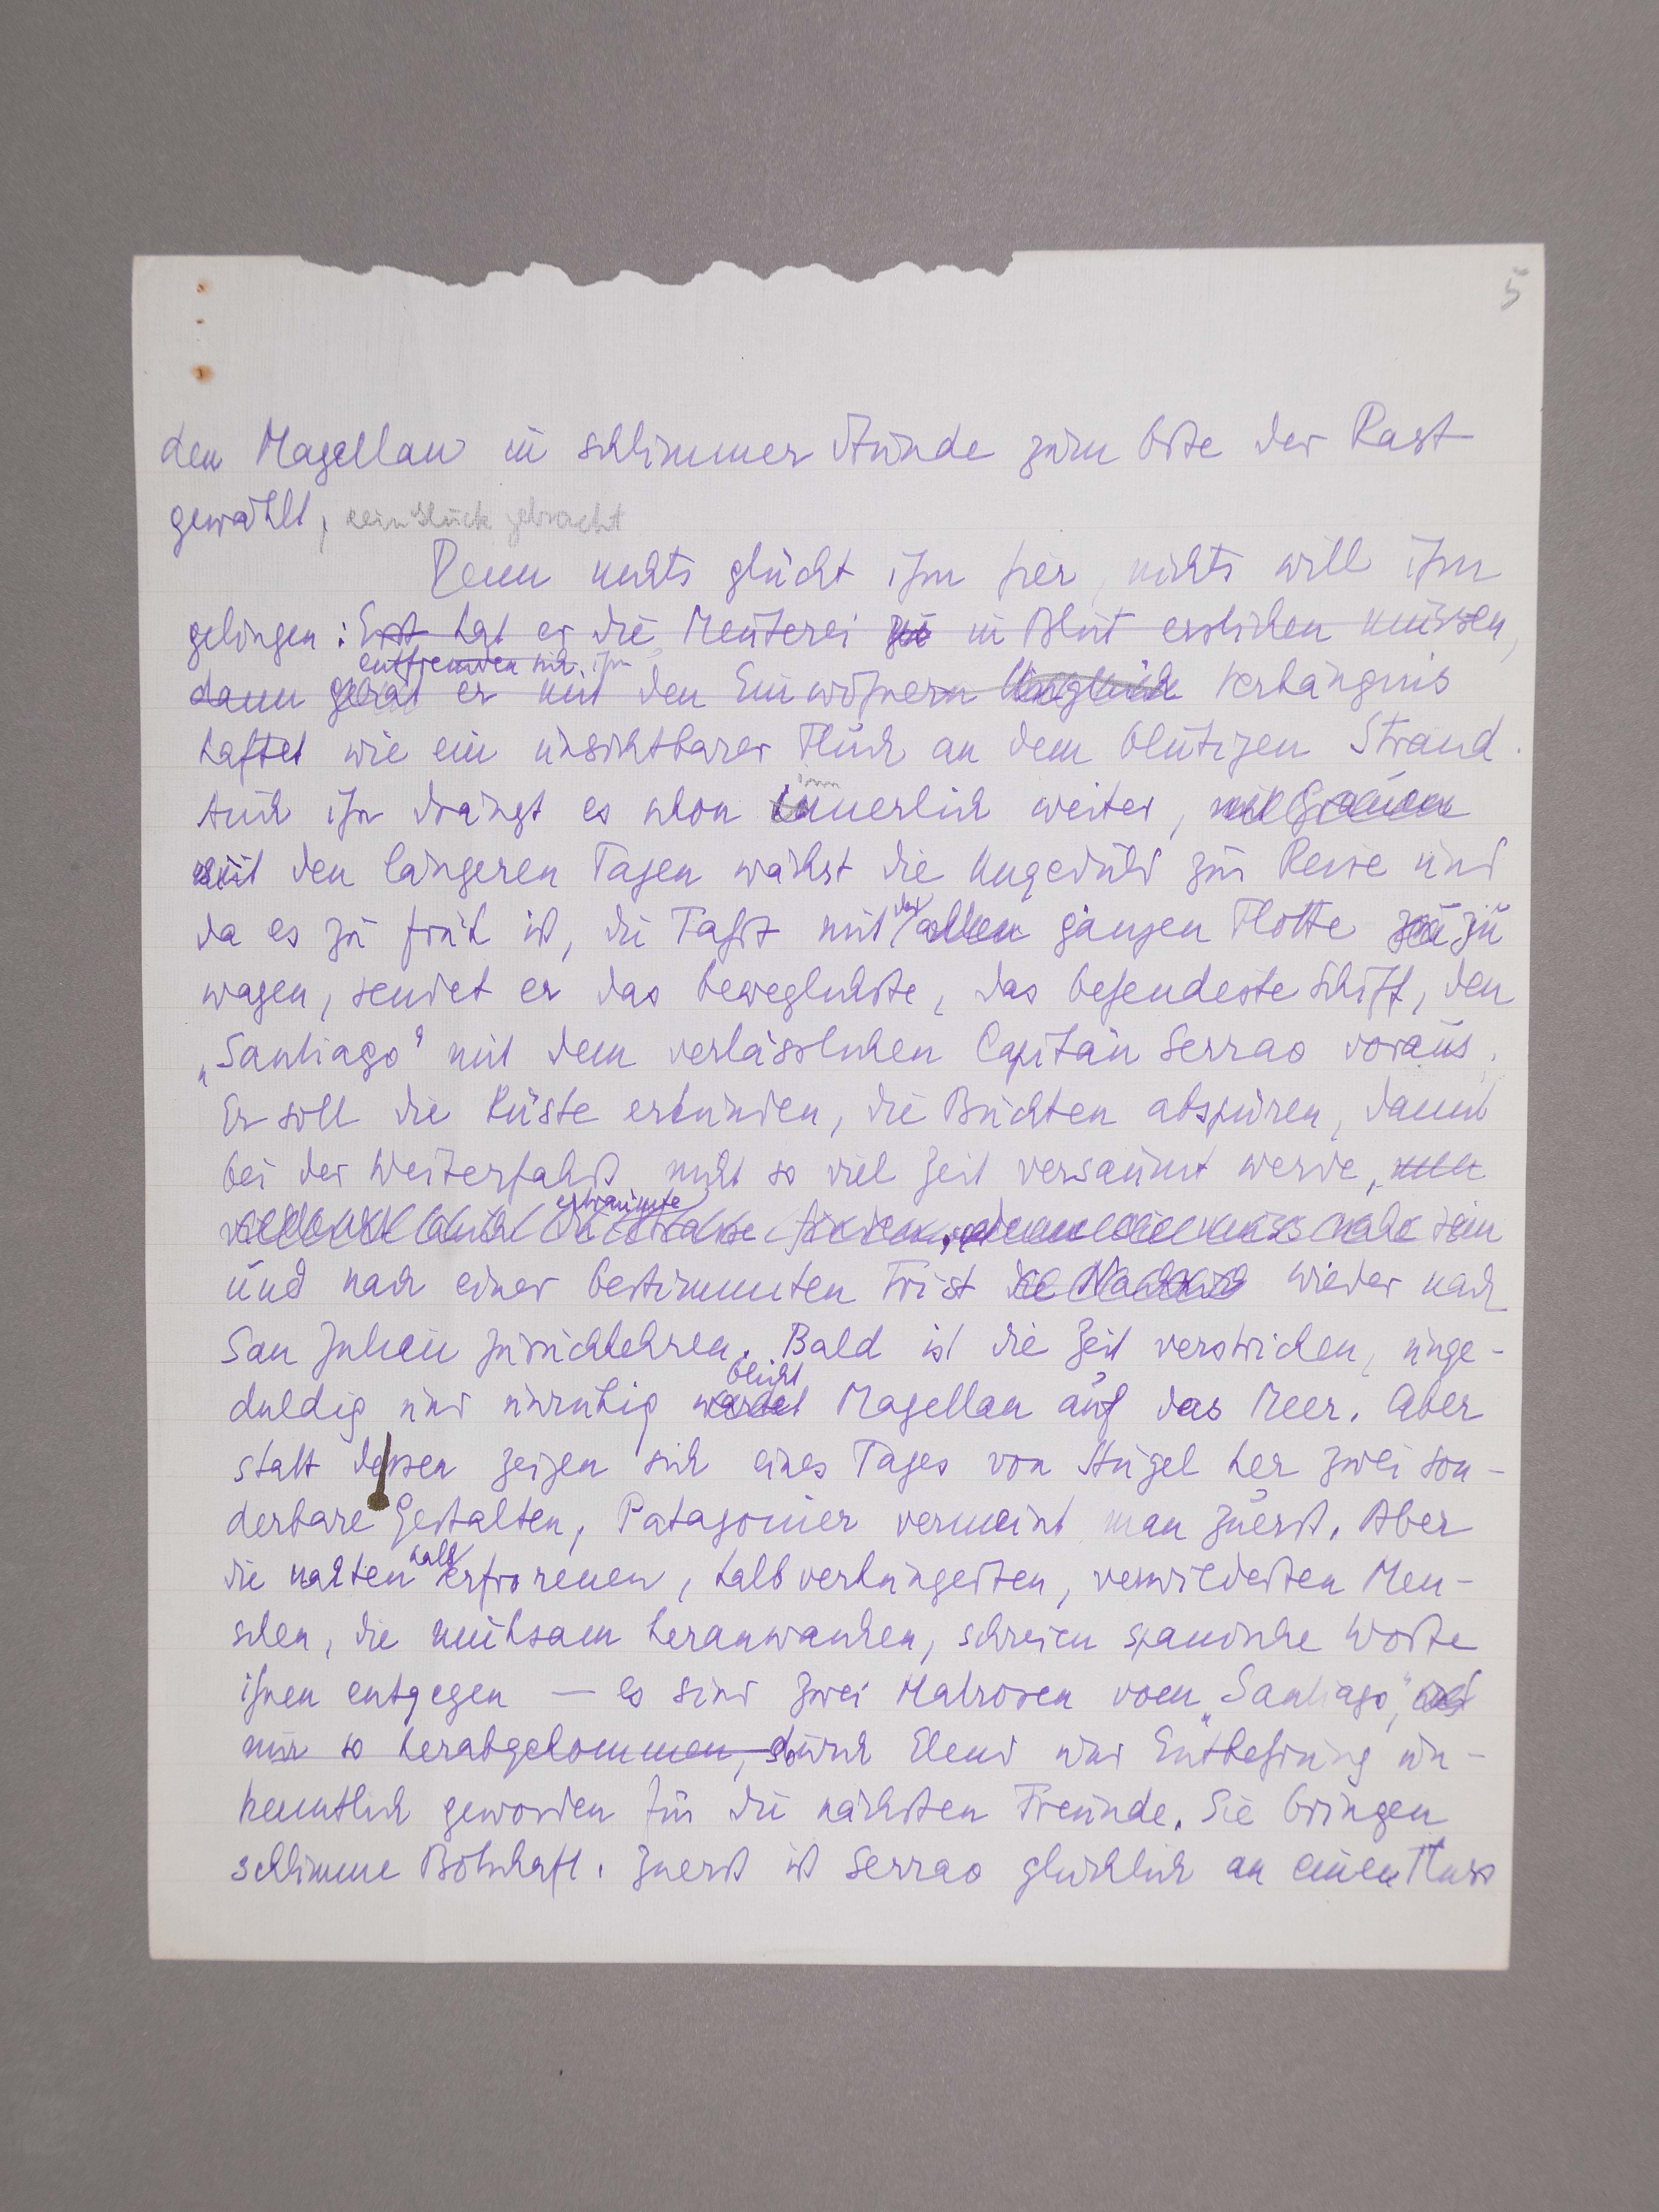 5
den Magellan in schlimmer Stunde zum Orte der Rast
gewählt, kein Glück gebracht
Denn nichts glückt ihm hier, nichts will ihm
gelingen: Erst hat er die Meuterei in Blut ersticken müssen,
entfremden sich ihm
dann gerät er mit den Einwohnern Verhängnis
haftet wie ein unsichtbarer Fluch an dem blutigen Strand.
Auch ihn drängt es schon innerlich weiter,
mit den längeren Tagen wächst die Ungeduld zur Reise und
da es zu früh ist, die Fahrt mit der ganzen Flotte zu
wagen, sendet er das beweglichste, das behendeste Schiff, den
„Santiago" mit dem verlässlichen Capitän Serrao voraus.
Er soll die Küste erkunden, die Buchten abspüren, damit
bei der Weiterfahrt nicht so viel Zeit versäumt werde,
erträumte
muss nahe sein
und nach einer bestimmten Frist wieder nach
San Julian zurückkehren. Bald ist die Zeit verstrichen, unge-
duldig und unruhig blickt Magellan auf das Meer. Aber
statt dessen zeigen sich eines Tages von Hügel her zwei son-
derbare Gestalten, Patagonier vermeint man zuerst. Aber
die nackten halb erfrorenen, halbverhungerten, verwilderten Men-
schen, die mühsam heranwanken, schreien spanische Worte
ihnen entgegen — es sind zwei Matrosen vom „Santiago",
nur so herabgekommen, durch Elend und Entbehrung un-
kenntlich geworden für die nächsten Freunde. Sie bringen
schlimme Botschaft. Zuerst ist Serrao glücklich an einen Fluss